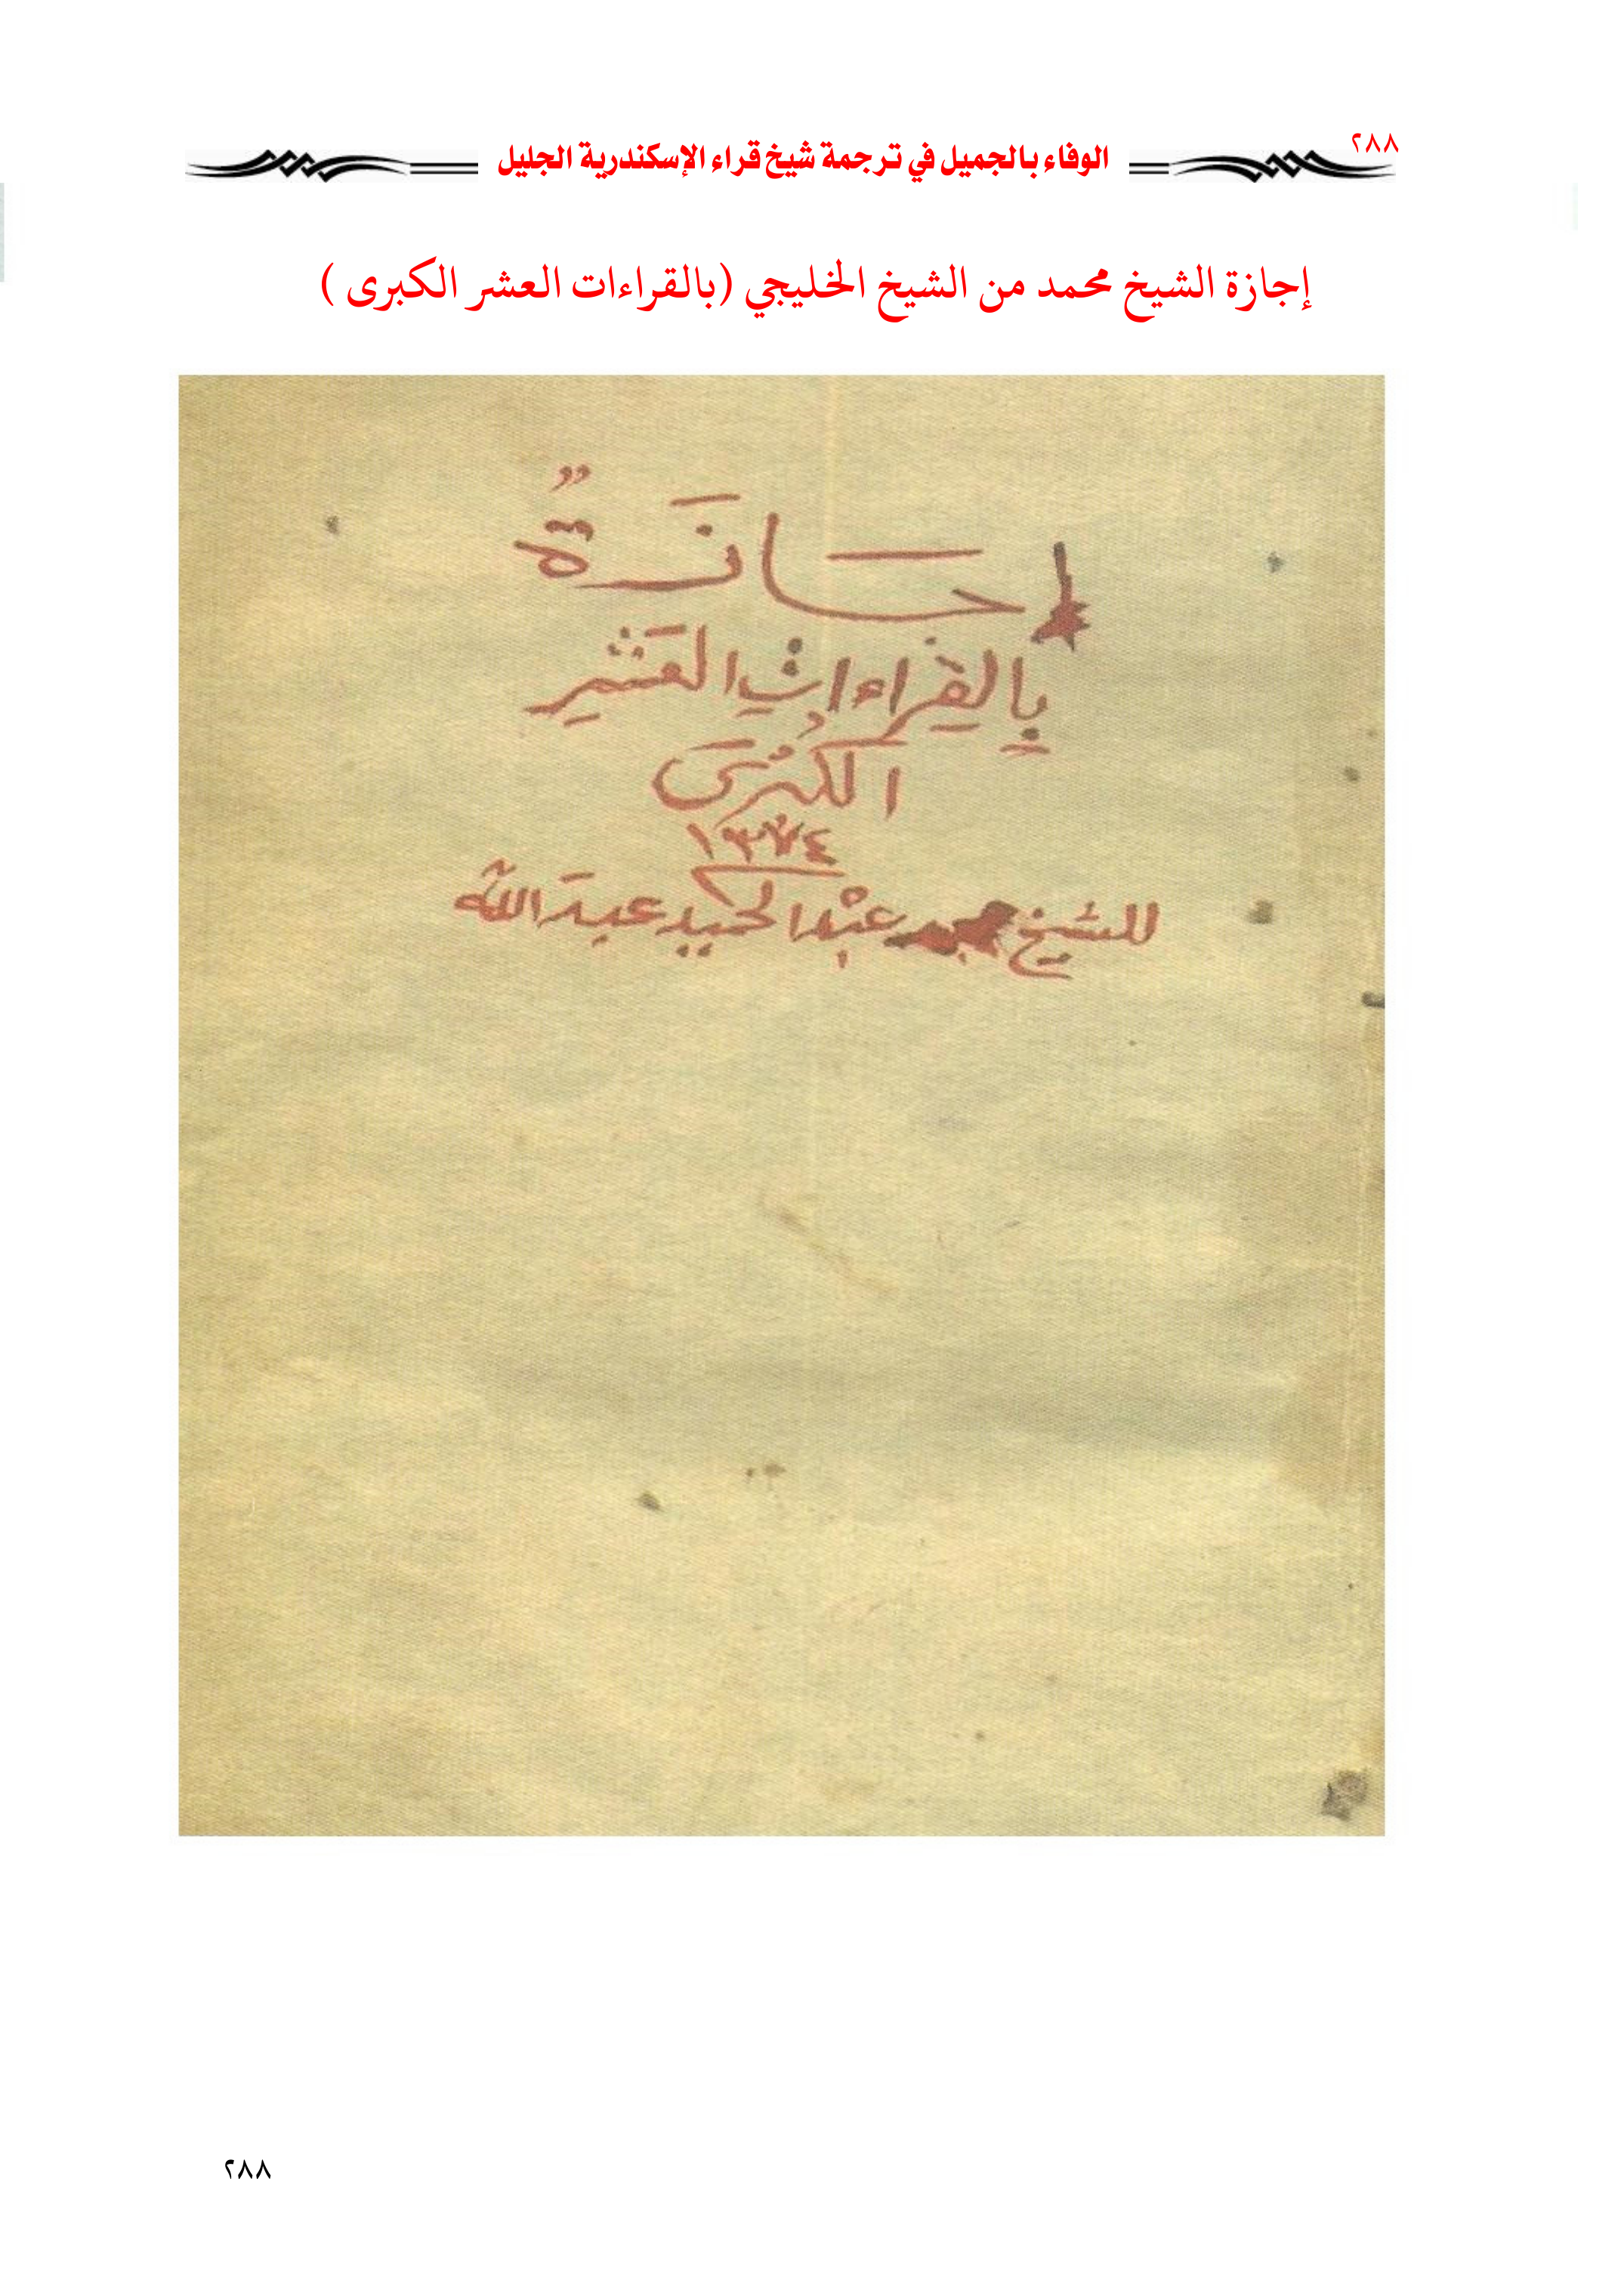 ٢٨٨
الوفاء بالجميل في ترجمة شيخ قراء الإسكندرية الجليل
إجازة الشيخ محمد من الشيخ الخليجي (بالقراءات العشر الكبرى )
اجَازَةٌ
بِالقِراءاتِ العَشْرِ
الكُبْرَى
١٣٧٤
للشيخ محمد عبْد الحميد عبدَ اللّه
٢٨٨